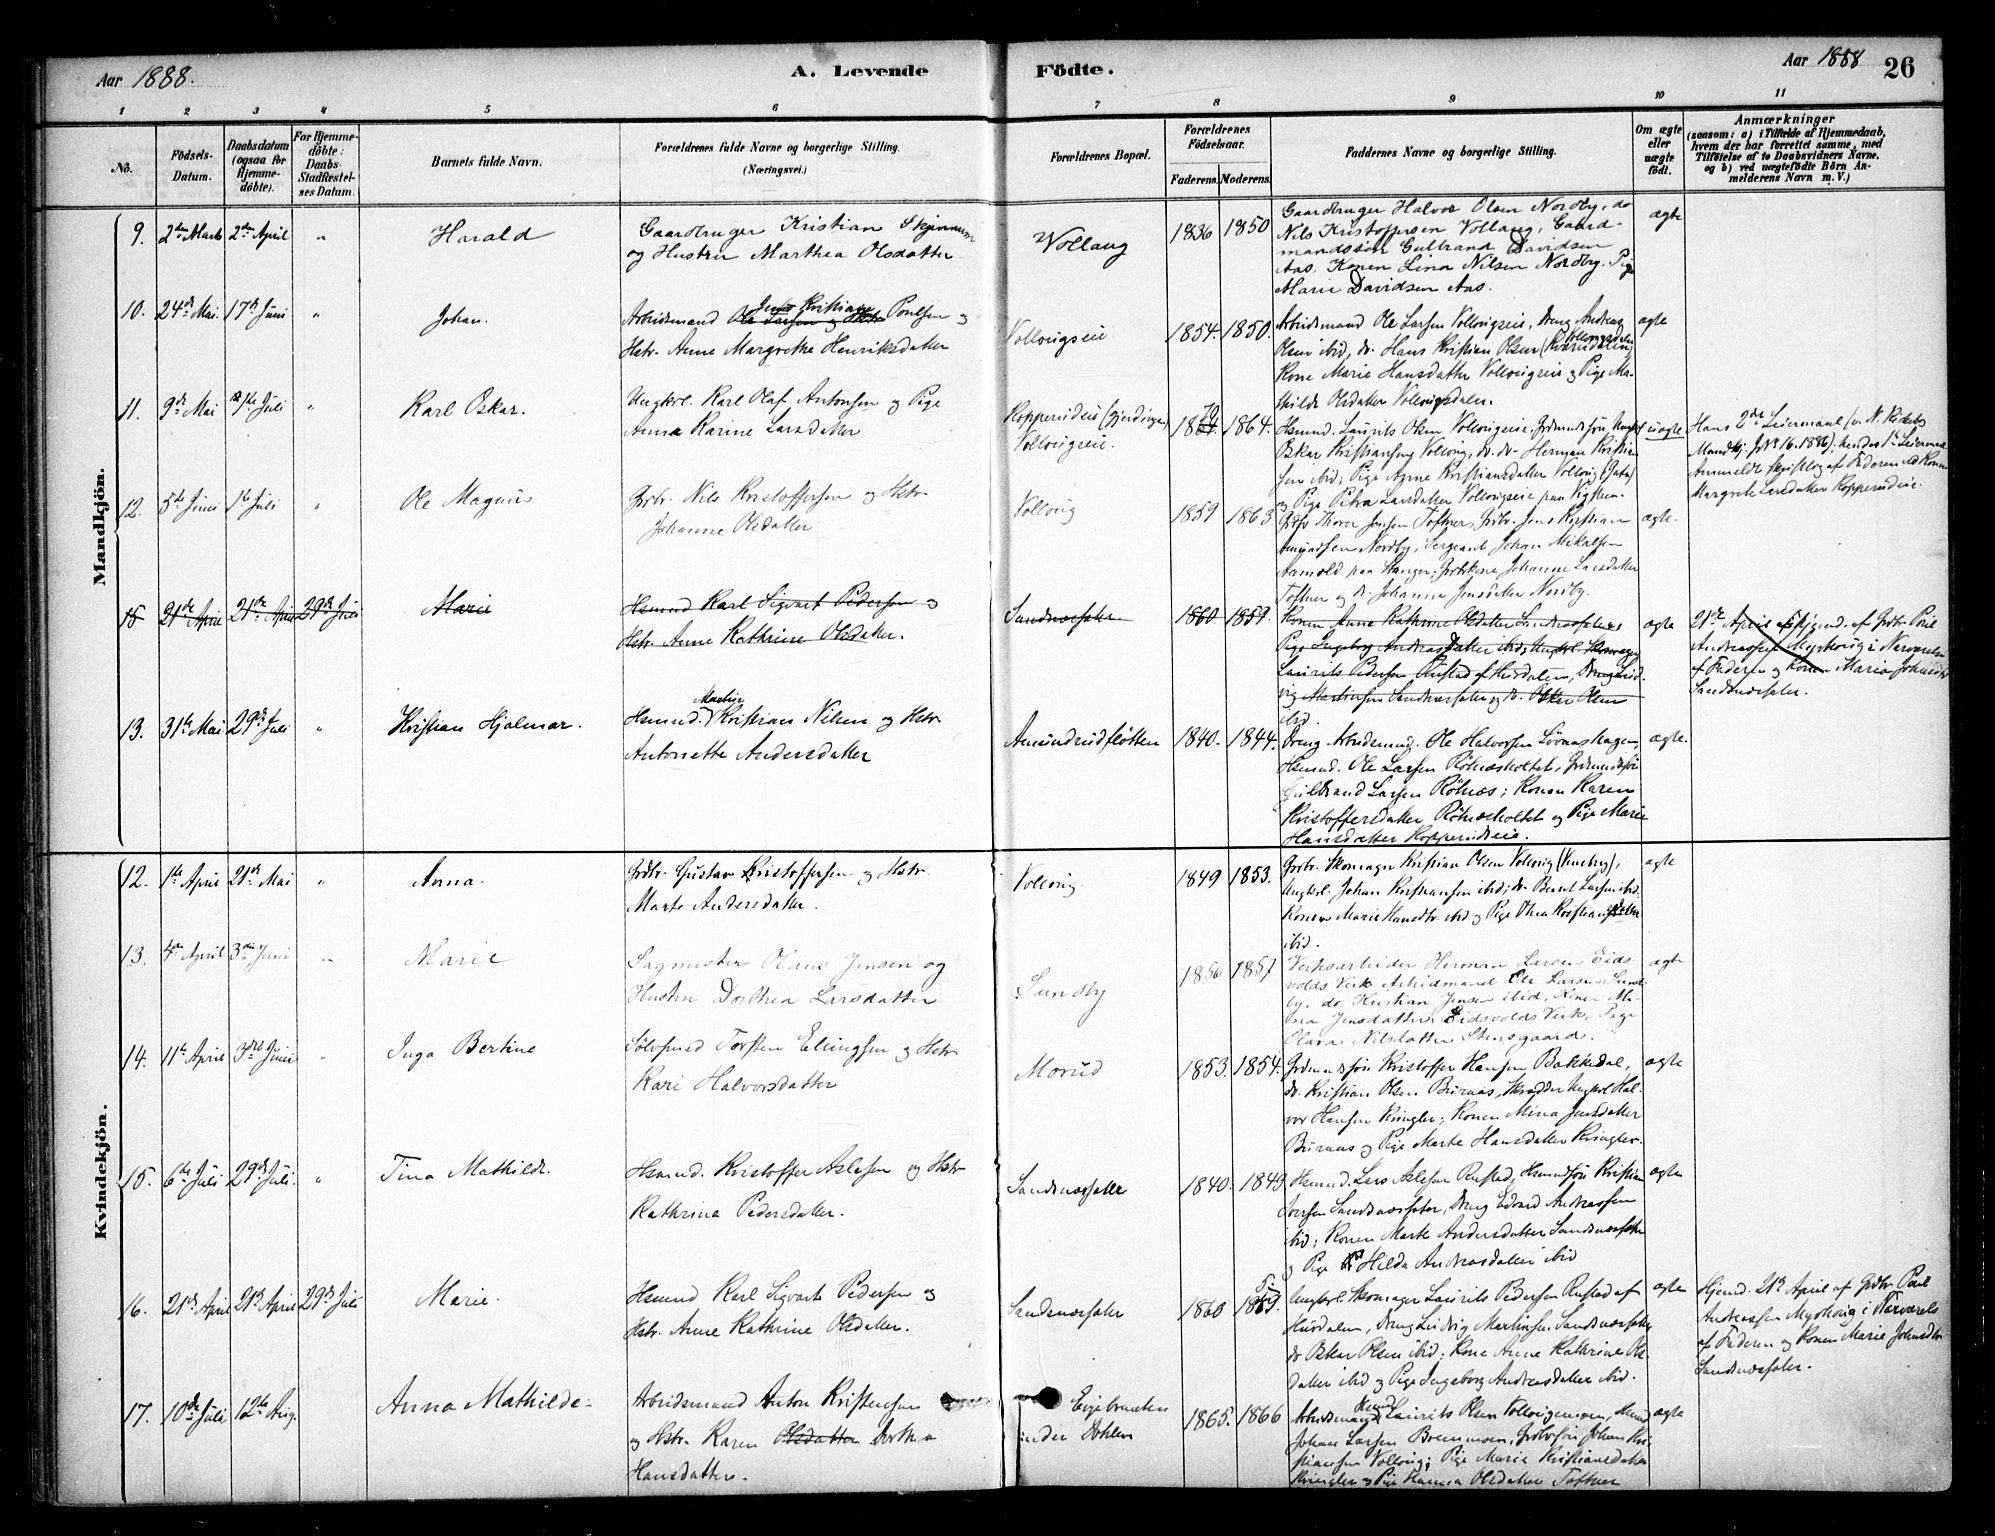 Aar 1888.
A. Levende
Födte.
Aar 1888
26
1 2 3 4 5 6 7 8 9 10 11
No.
Födsels-
Datum.
Daabsdatum
(ogsaa for
Hjemme-
döbte).
For Hjemme-
döbte:
Daabs-
Stadfæstel-
ses Datum.
Barnets fulde Navn.
Forældrenes fulde Navne og borgerlige Stilling.
(Næringsvei.)
Forældrenes Bopæl.
Forældrenes
Födselsaar.
Faderens. Moderens.
Faddernes Navne og borgerlige Stilling.
Om ægte
eller
uægte
födt.
Anmærkninger
(saasom: a) i Tilfælde af Hjemmedaab,
hvem der har forrettet samme, med
Tilföielse af to Daabsvidners Navne,
og b) ved uægtefödte Börn An-
melderens Navn m. V.)
Mandkjön.
9. 2den Marts 2den April " Harald
Gaardbruger Kristian
og Hustru Marthea Olsdatter
Vollaug 1836 1850
Gaardbruger Halvor Olsen Nordby, do
Nils Kristoffersen Vollaug, Gaard-
mandssön Gulbrand Davidsen
Aas, Konen Lina Nilsen Nordby, Pige
Marie Davidsen Aas.
ægte
10. 24de Mai. 17de Juni " Johan.
Jens Kristian
Arbeidsmand Ole Larsen og Hstr Poulsen og
Hstr. Anne Margrethe Henriksdatter
Vollougseie 1854. 1850.
Arbeidsmand Ole Larsen Vollougseie, Dreng Andreas
Olsen ibid, do. Hans Kristian Olsen
Kone Marie Hansdatter Vollougseie og Pige Ma-
thilde Olsdatter Vollougsdalen.
ægte
11. 9de Mai 1ste Juli " Karl Oskar.
Ungkrl. Karl Olaf Antonsen og Pige
Anna Karine Larsdatter
Kopperudeie
Vollougseie. 1864. 1864.
Hsmnd. Laurits Olsen Vollougseie, Grdmandssön,
Oskar Kristiansen Volloug, do. do. Herman Kristian-
sen ibid; Pige Agne Kristiansdatter Volloug
og Pige Petra Larsdatter Vollougseie
uægte
Hans 2det Leiermaal
Mandkj. No 16. 1886). hendes 1ste Leiermaal
Anmeldt skriftlig af Faderen ved Konen
Margrete Larsdatter Kopperudeie.
12. 5te Juni 1ste Juli " Ole Magnus
Grdbr. Nils Kristoffersen og Hstr.
Johanne Olsdatter
Volloug 1859 1863.
Grdbr Thorer Jensen Toftner, Grdbr. Jens Kristian
Amundsen Nordby, Sergeant Johan Mikalsen
paa Stanger; Grdbrkone Johanne Larsdatter
Toftner og do Johanne Jensdatter Nordby.
ægte.
15 21de April 21de April 29de Juli Marie
Hsmnd Karl Sigvart Pedersen og
Hstr. Anne Kathrine Olsdatter.
Sandnæssæter 1860 1859.
Konen Anne Kathrine Olsdatter Sandnæssæter,
Pige Ingeborg Andreasdatter ibid; Ungkrl. Skomager
Laurits Pedersen Rustad af Hurdalen, Dreng Lud-
vig Martinsen Sandnæssæter og do. Oskar Olsen
ibid.
ægte
21de April Hjemd. af Grdbr Poul
Andreassen Myrhoug i Narverels
af Faderen og Konen Marie Johnsdtr
Sandsnæssæter.
13. 31te Mai 29de Juli " Kristian Hjalmar.
Martin
Hsmnd. Kristian Nilsen og Hstr
Antonette Andersdatter
Amundrudflötten 1840. 1844.
Dreng Arbeidsmnd. Ole Halvorsen
Hsmnd. Ole Larsen Röhnesholtet, Grdmandssön
Gulbrand Larsen Röhnes; Konen Karen
Kristoffersdatter Röhnesholtet og Pige Marie
Hansdatter Kopperudeie.
ægte.
Kvindekjön.
12. 1ste April 21de Mai " Anna.
Grdbr. Gustav Kristoffersen og Hstr.
Marte Andersdatter.
Volloug. 1849 1853.
Grdbr. Skomager Kristian Olsen Volloug
Ungkrl. Johan Kristiansen ibid; do. Bernt Larsen ibid.
Konen Marie Hansdtr. ibid og Pige Thea Kristiansdatter
ibid.
ægte
13. 4de April 3die Juni " Marie
Sagmester Olaus Jensen og
Hustru Dorthea Larsdatter
Sundby 1856 1857
Verksarbeider Herman Larsen Eids
volds Verk, Arbeidmand Ole Larsen Sund
by, do Kristian Jensen ibid, Konen
Jensdatter Eidsvolds Verk, Pige
Olava Nilsdatter Stensgaard.
ægte
14. 11te April 3die Juni " Inga Bertine
Sölvsmed Torsten Ellingsen og Hstr
Kari Halvorsdatter
Morud 1853. 1854.
Grdmandssön Kristoffer Hansen Bakkedal,
do. Kristian Olsen Buraas, Skrædder Ungkrl Hal-
vor Hansen Kringler; Konen Mina Jensdatter
Buraas og Pige Marte Hansdatter Kringler.
ægte
15. 6te Juli 29de Juli. " Tina Mathilde.
Hsmnd. Kristoffer Aslesen og Hstr
Kathrine Pedersdatter.
Sandnæssæter 1840. 1849
Hsmnd. Lars Aslesen Rustad, Hsmndssön Kristian
Iversen Sandnæssæter, Dreng Edvard Andreassen
ibid; Konen Marte Andersdatter Sandnæssæter
og Pige Hilda Andreasdatter ibid
ægte
16. 21de April 21de April 29de Juli Marie.
Hsmnd Karl Sigvart Pedersen og
Hstr. Anne Kathrine Olsdatter.
Sandnæssæter 1860 1859.
Ungkrl. Skomager Laurits Pedersen Rustad af
Hurdalen, Dreng Ludvig Martinsen Sandnæssæter
do Oskar Olsen ibid; Kone Anne Kathrine Ols-
datter ibid og Pige Ingeborg Andreasdatter ibid.
ægte
Hjemd. 21de April af Grdbr Poul
Andreassen Myrhoug i Narverels
af Faderen og Konen Marie Johnsdtr
Sandsnæssæter.
17. 10de Juli 12te Aug. Anna Mathilde
Arbeidsmand Anton Kristensen
og Hstr. Karen Olsdatter Dorthea
Hansdatter.
Eigebraaten
under Dohlen 1865. 1866
Arbeidsmand Laurits Olsen
Johan Larsen Grdbrsön Johan Kri-
stiansen Volloug; Pige Marie Kristiansdatter
Kringler og Pige Hanna Olsdatter Toftner
ægte